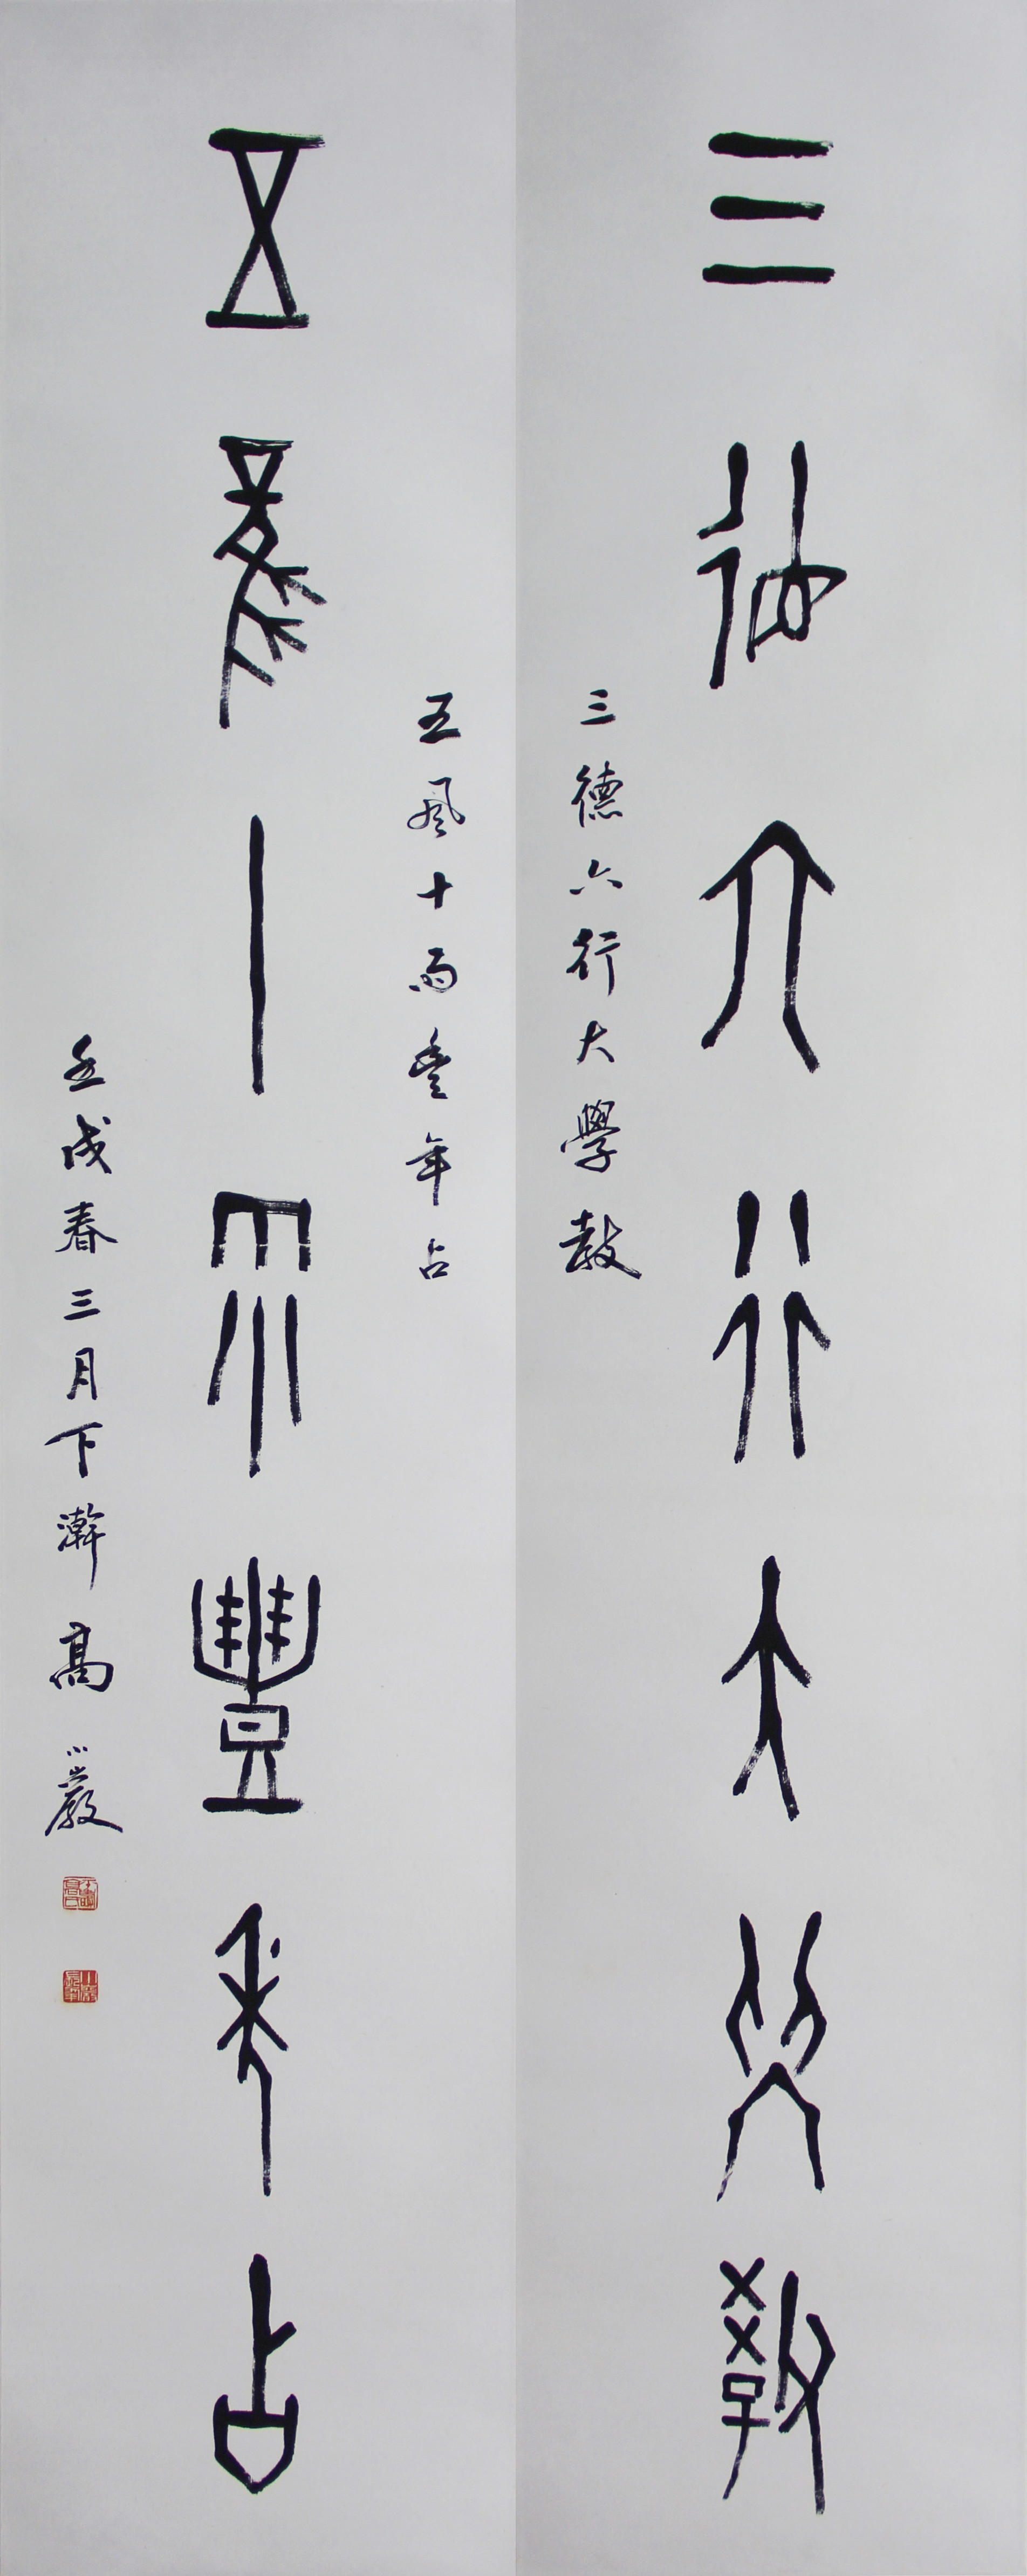 三德六行大學教
三德六行大學教
五風十雨豐年占
五風十雨豐年占
壬戌春三月下澣高小巖